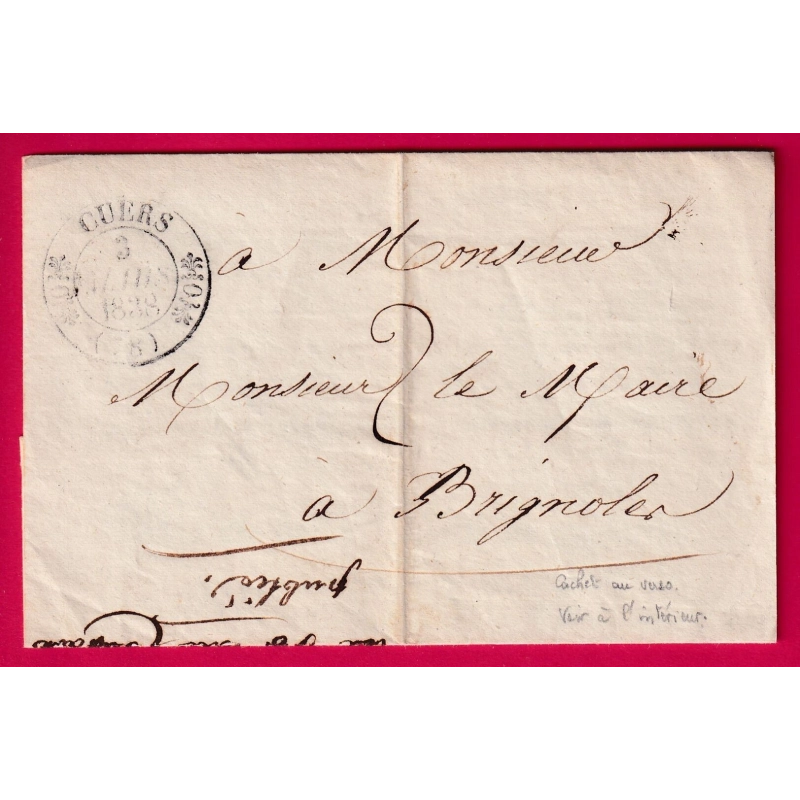 CUERS
3
1838
à Monsieur
2
Monsieur le Maire
à Brignoles
publié.
Cachet au verso.
Voir à l'intérieur.